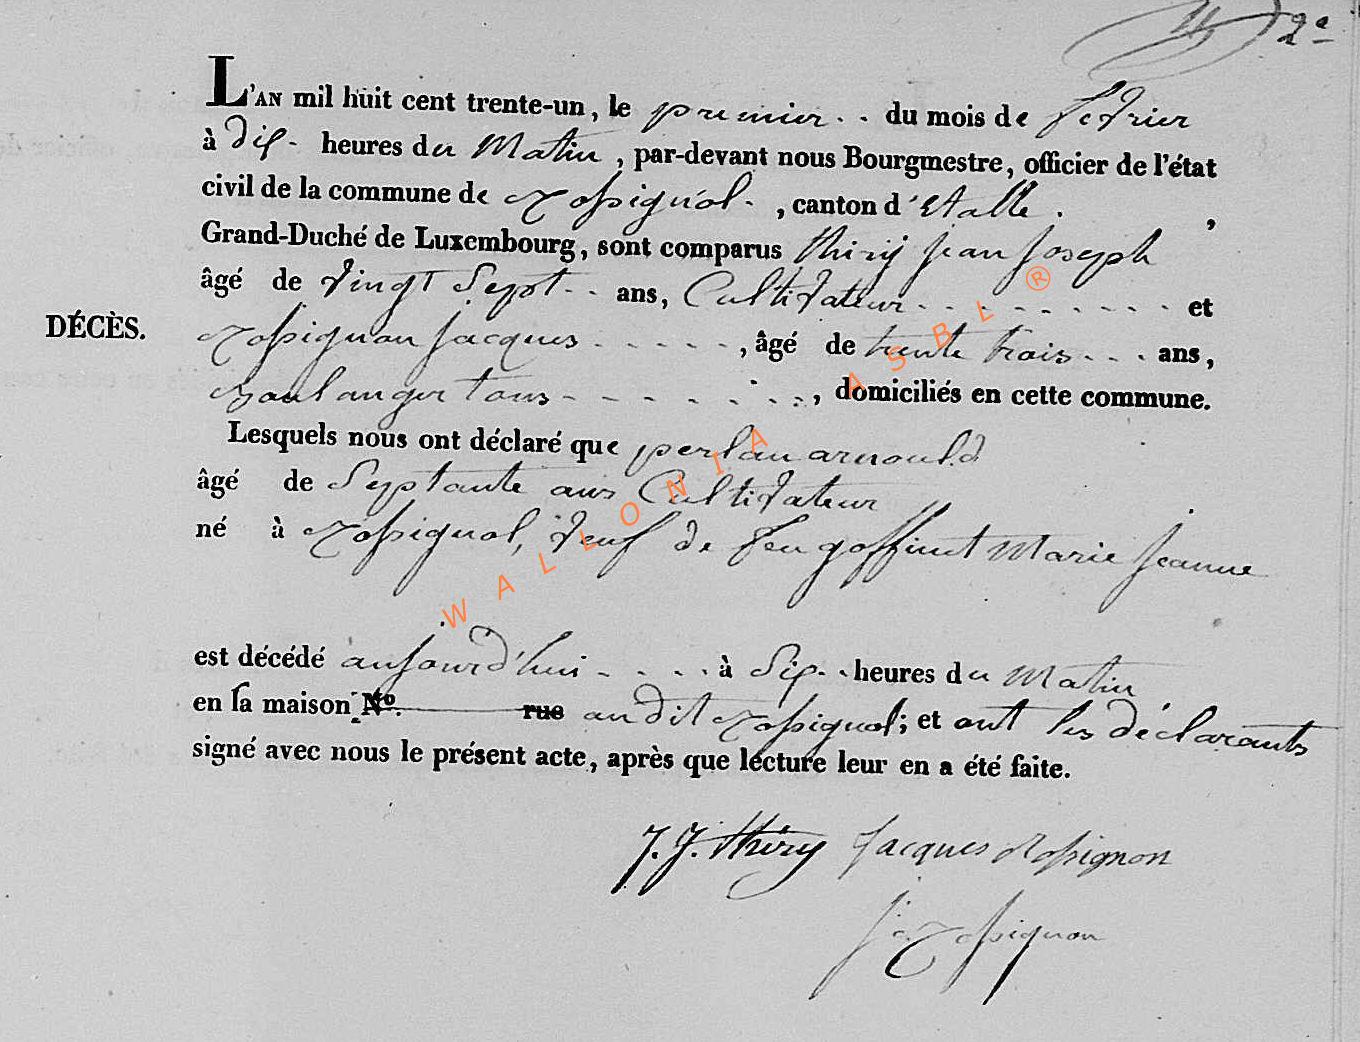 2e
L'AN mil huit cent trente-un, le premier du mois de fevrier
à dix heures du Matin, par-devant nous Bourgmestre, officier de l'état
civil de la commune de Rossignol, canton d'Etalle,
Grand-Duché de Luxembourg, sont comparus thiry jean joseph
âgé de vingt Sept ans, Cultivateur et
DÉCÈS. Rossignon jacques, âgé de trente trois ans,
Boulanger tous, domiciliés en cette commune.
Lesquels nous ont déclaré que perlau arnould
âgé de Septante ans Cultivateur
né à Rossignol, veuf de feu goffinet Marie jeanne
est décédé aujourd'hui à Six heures du Matin
en la maison No. rue audit Rossignol; et ont les déclarants
signé avec nous le présent acte, après que lecture leur en a été faite.
J. J. thiry jacques Rossignon
Rossignon
WALLONIA ASBL ®